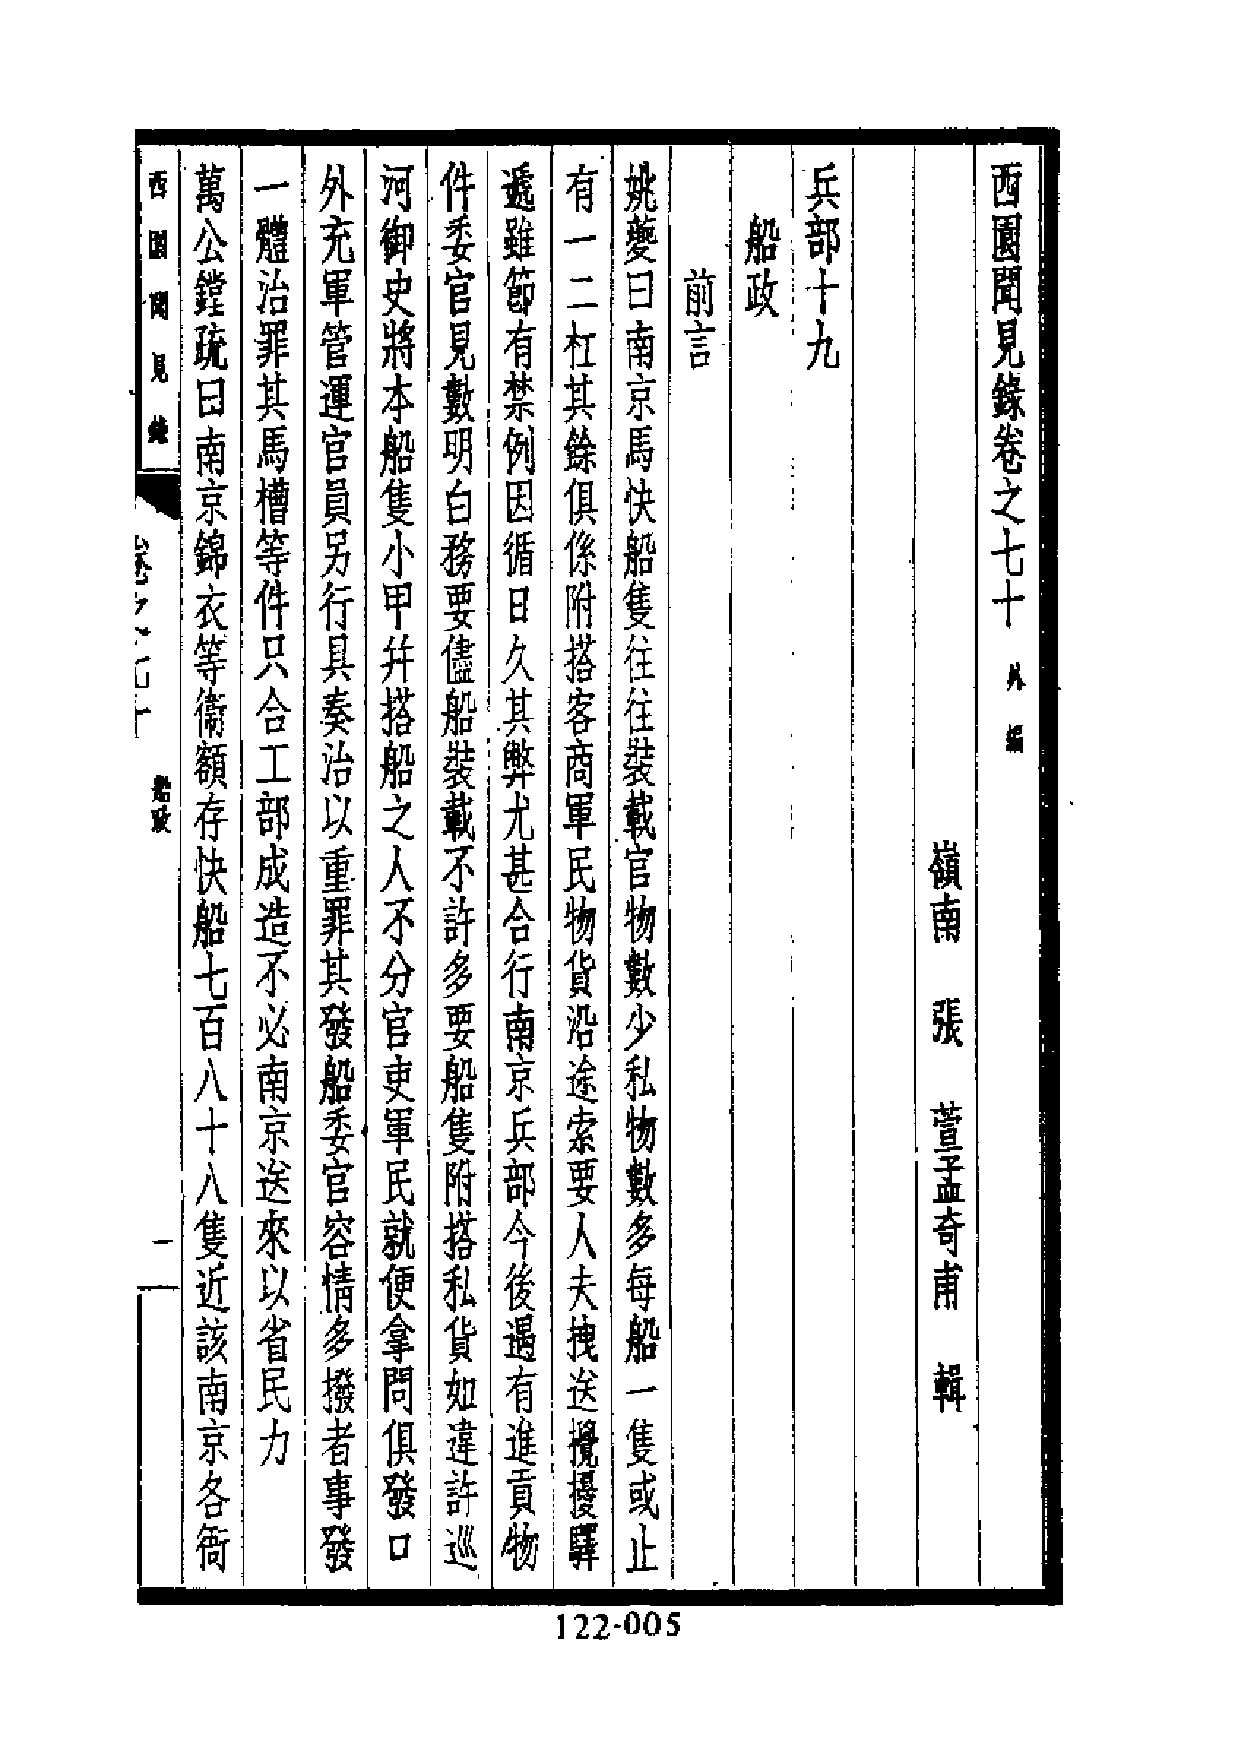 西園聞見錄卷之七十 外編
嶺南 張 萱孟奇甫 輯
兵部十九
船政
前言
姚夔曰南京馬快船隻往往裝載官物數少私物數多每船一隻或止
有一二杠其餘俱係附搭客商軍民物貨沿途索要人夫拽送攪擾驛
遞雖節有禁例因循日久其弊尤甚合行南京兵部今後遇有進貢物
件委官見數明白務要儘船裝載不許多要船隻附搭私貨如違許巡
河御史將本船隻小甲幷搭船之人不分官吏軍民就便拿問俱發口
外充軍管運官員另行具奏治以重罪其發船委官容情多撥者事發
一體治罪其馬槽等件只合工部成造不必南京送來以省民力
萬公鏜疏曰南京錦衣等衞額存快船七百八十八隻近該南京各衙
西園聞見錄 卷之七十 船政 一
122-005